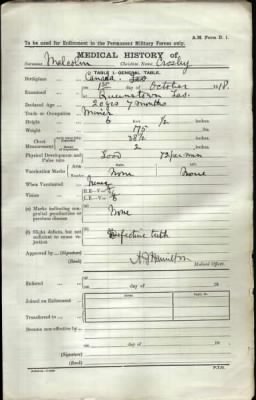 A.M. Form D. 1.
To be used for Enlistment in the Permanent Military Forces only.
MEDICAL HISTORY OF
Surname Malcolm Christian Name Crosby
TABLE I—GENERAL TABLE.
Birthplace Canada
Examined 1st day of October 1918.
Queenstown Tas.
Declared Age 20 yrs 7 months
Trade or Occupation Miner
Height 6 Feet 1/2 Inches
Weight 175 lbs.
Chest Measurement 38½ Inches
2 Inches
Physical Development and Pulse rate Good 72 per min
Vaccination Marks Arm Right Left
Number None None
When Vaccinated
Vision R.E.—V. 6/6
L.E.—V. 6/6
(a) Marks indicating congenital peculiarities or previous disease None
(b) Slight defects, but not sufficient to cause rejection Defective teeth
Approved by (Signature) A J Hamilton
(Rank) Medical Officer.
Enlisted at
on day of 19
Joined on Enlistment
Transferred to
Became non-effective by
on day of 19
(Signature)
(Rank)
P.T.O.